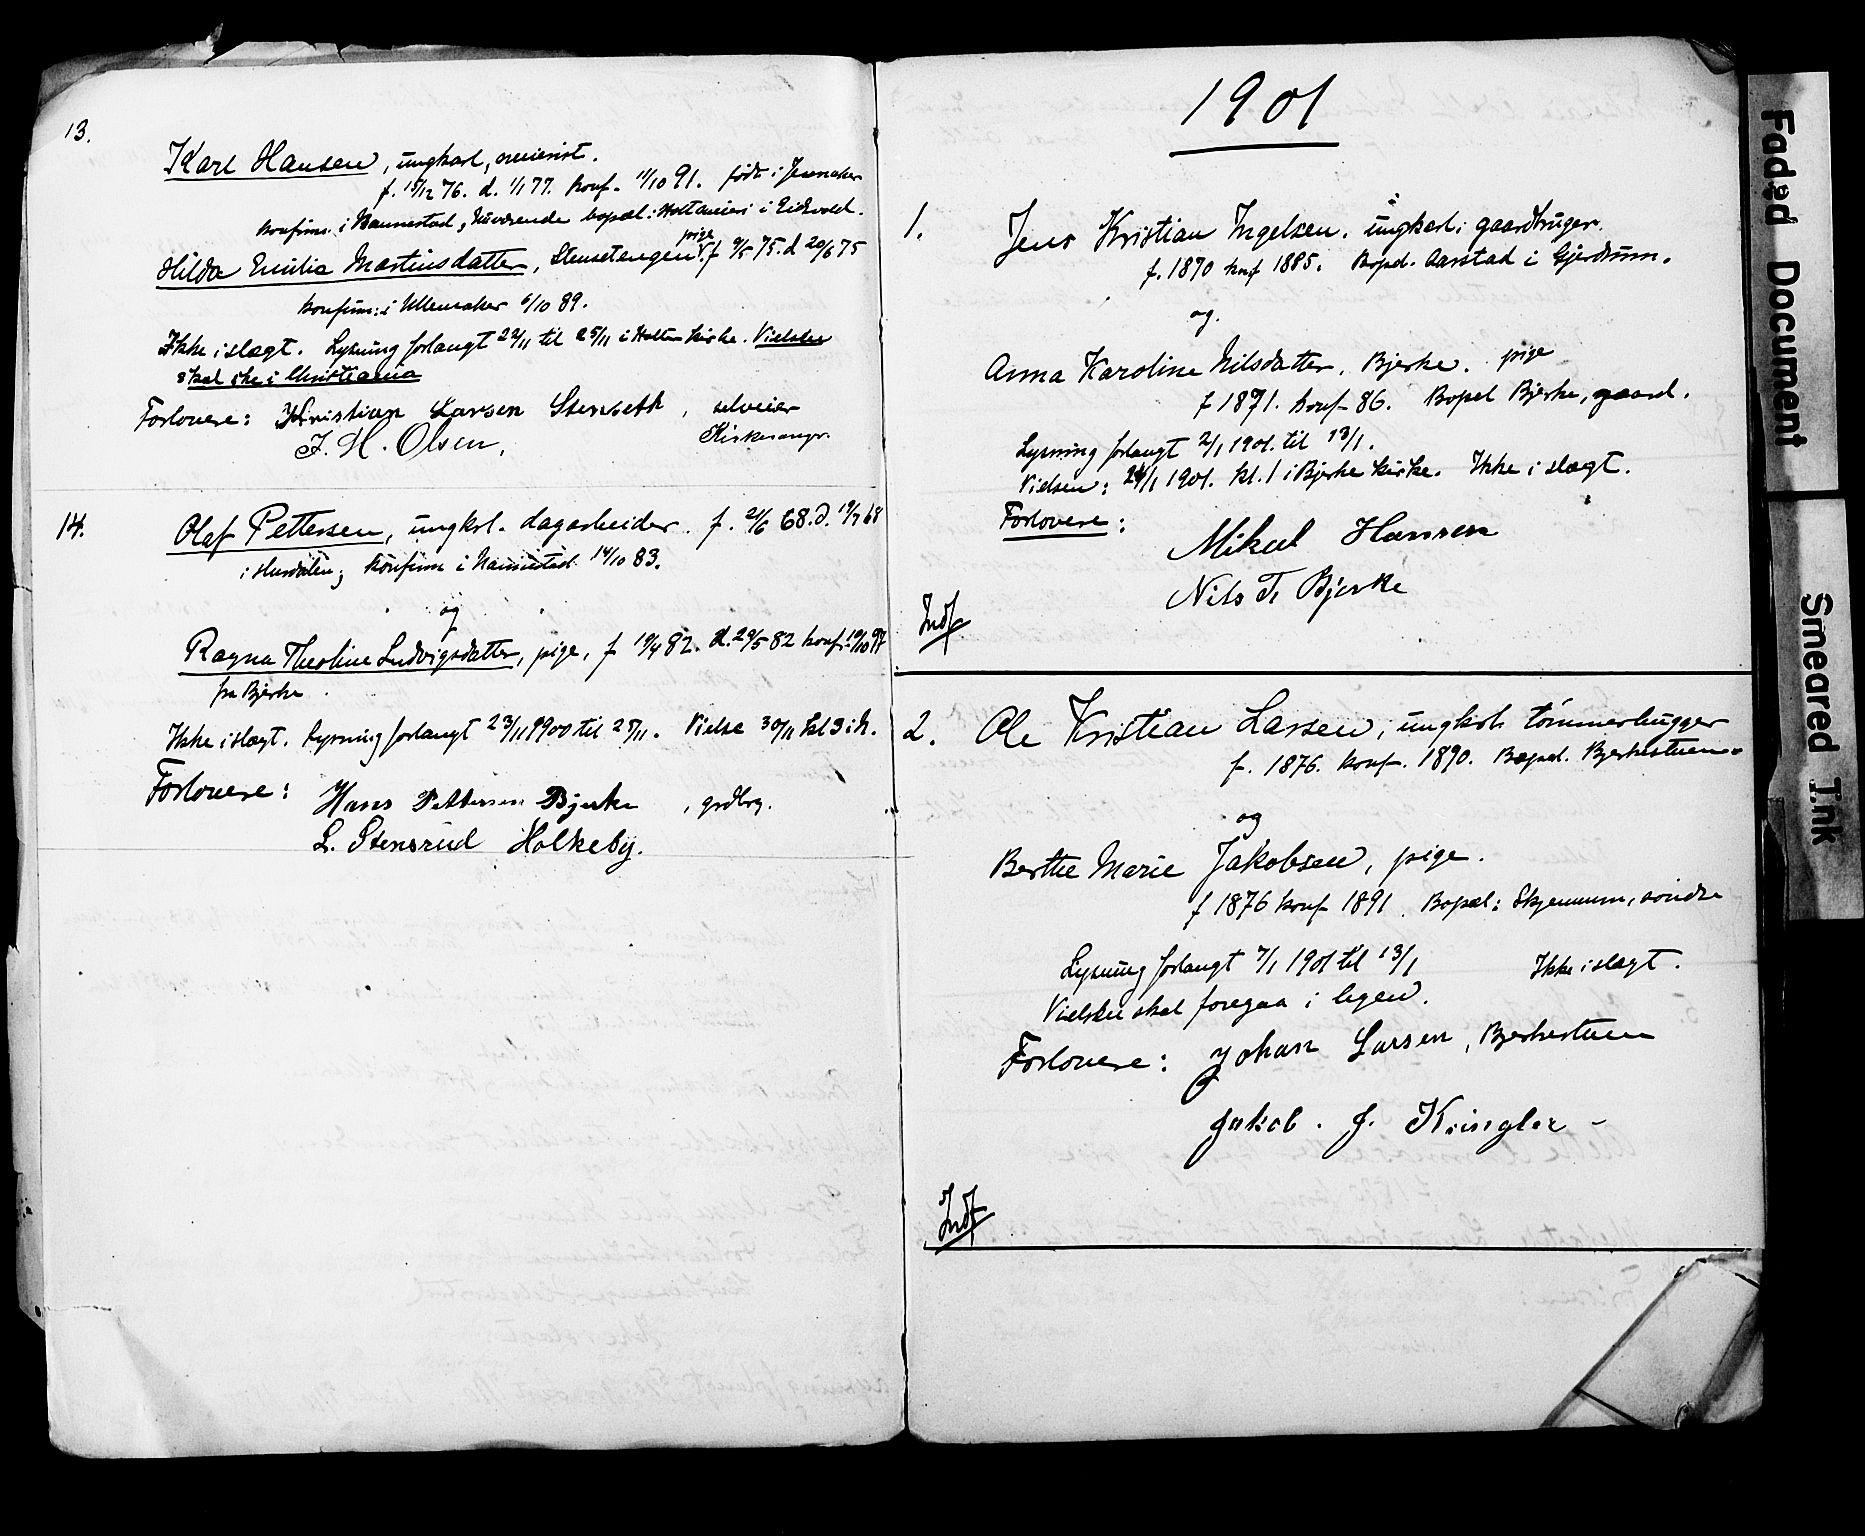 13.
Karl Hansen, ungkarl, meierist.
f. 15/12 76. d. 1/1 77. konf. 11/10 91. født i Jevnaker
konfirm. i Nannestad, Nuværende bopæl: Holtameieri i Eidsvold.
Hilda Emilia Martinsdatter, Stensetengen pige f 9/5 75. d 20/6 75
konfirm: i Ullensaker 6/10 89.
Ikke i slægt. Lysning forlangt 22/11 til 25/11 i Holter kirke. Vielsen
skal ske i Christiania
Forlovere: Kristian Larsen Stenseth, selveier
J. H. Olsen, Kirkesangr.
14.
Olaf Pettersen, ungkrl. dagarbeider. f. 21/6 68. d. 19/7 68
i Hurdalen; konfirm i Nannestad 14/10 83.
og
Ragna Theoline Ludvigsdatter, pige, f 19/4 82. d. 29/5 82 konf: 10/10 97
fra Bjerke
Ikke i slægt. Lysning forlangt 23/11 1900 til 25/11. Vielse 30/11 kl 3 i N.
Forlovere: Hans Pettersen Bjerke, grdbrg.
L. Stensrud Holkeby.
1901
1. Jens Kristian Ingelsen. ungkarl; gaardbruger.
f. 1870 konf 1885. Bopæl. Aarstad i Gjerdrum.
og.
Anna Karoline Nilsdatter, Bjerke. pige
f 1871. konf 86. Bopel Bjerke, gaard.
Lysning forlangt 2/1 1901. til 13/1.
Vielsen: 24/1 1901. kl. 1 i Bjerke kirke. Ikke i slægt.
Forlovere:
Mikal Hansen
Nils T. Bjerke
Indf
2. Ole Kristian Larsen, ungkrl. tömmerhugger
f. 1876. konf. 1890. Bopæl. Bjerkestuen.
og
Berthe Marie Jakobsen, pige.
f 1876 konf 1891. Bopæl: Skjennum, söndre
Lysning forlangt 7/1 1901 til 13/1 Ikke i slægt.
Vielsen skal foregaa i byen.
Forlovere: Johan Larsen, Bjerkestuen
Jakob. J. Kringler -
Indf
Faded Document
Smeared Ink